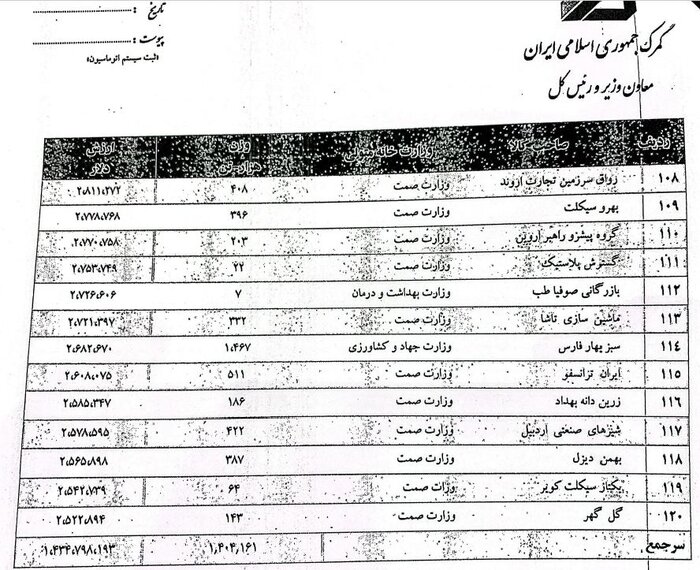 تاریخ :
پیوست :
«ثبت سیستم اتوماسیون»
گمرک جمهوری اسلامی ایران
معاون وزیر و رئیس کل
ردیف صاحب کالا وزارت خانه وزن ارزش دلار
۱۰۸ رواق سرزمین تجارت اروند وزارت صمت ۴۰۸ ۲،۸۱۱،۲۷۲
۱۰۹ بهرو سیکلت وزارت صمت ۳۹۶ ۲،۷۷۸،۷۶۸
۱۱۰ گروه پیشرو راهبر اروین وزارت صمت ۲۰۳ ۲،۷۷۰،۷۵۸
۱۱۱ گسترش پلاستیک وزارت صمت ۲۲ ۲،۷۵۳،۷۴۹
۱۱۲ بازرگانی صوفیا طب وزارت بهداشت و درمان ۷ ۲،۷۲۶،۶۰۶
۱۱۳ ماشین سازی تاشا وزارت صمت ۳۳۲ ۲،۷۲۱،۳۹۷
۱۱۴ سبز بهار فارس وزارت جهاد و کشاورزی ۱،۴۶۷ ۲،۶۸۲،۶۷۰
۱۱۵ ایران ترانسفو وزارت صمت ۵۱۱ ۲،۶۰۸،۰۷۵
۱۱۶ زرین دانه بهداد وزارت صمت ۱۸۶ ۲،۵۸۵،۳۴۷
۱۱۷ شیرهای صنعتی اردبیل وزارت صمت ۴۲۲ ۲،۵۷۸،۵۹۵
۱۱۸ بهمن دیزل وزارت صمت ۳۸۷ ۲،۵۶۵،۸۹۸
۱۱۹ یکتاز سیکلت کویر وزارت صمت ۶۴ ۲،۵۴۲،۷۳۹
۱۲۰ گل گهر وزارت صمت ۱۴۳ ۲،۵۲۲،۸۹۴
سرجمع ۱،۴۰۴،۱۶۱ ۱،۴۳۴،۷۹۸،۱۹۳